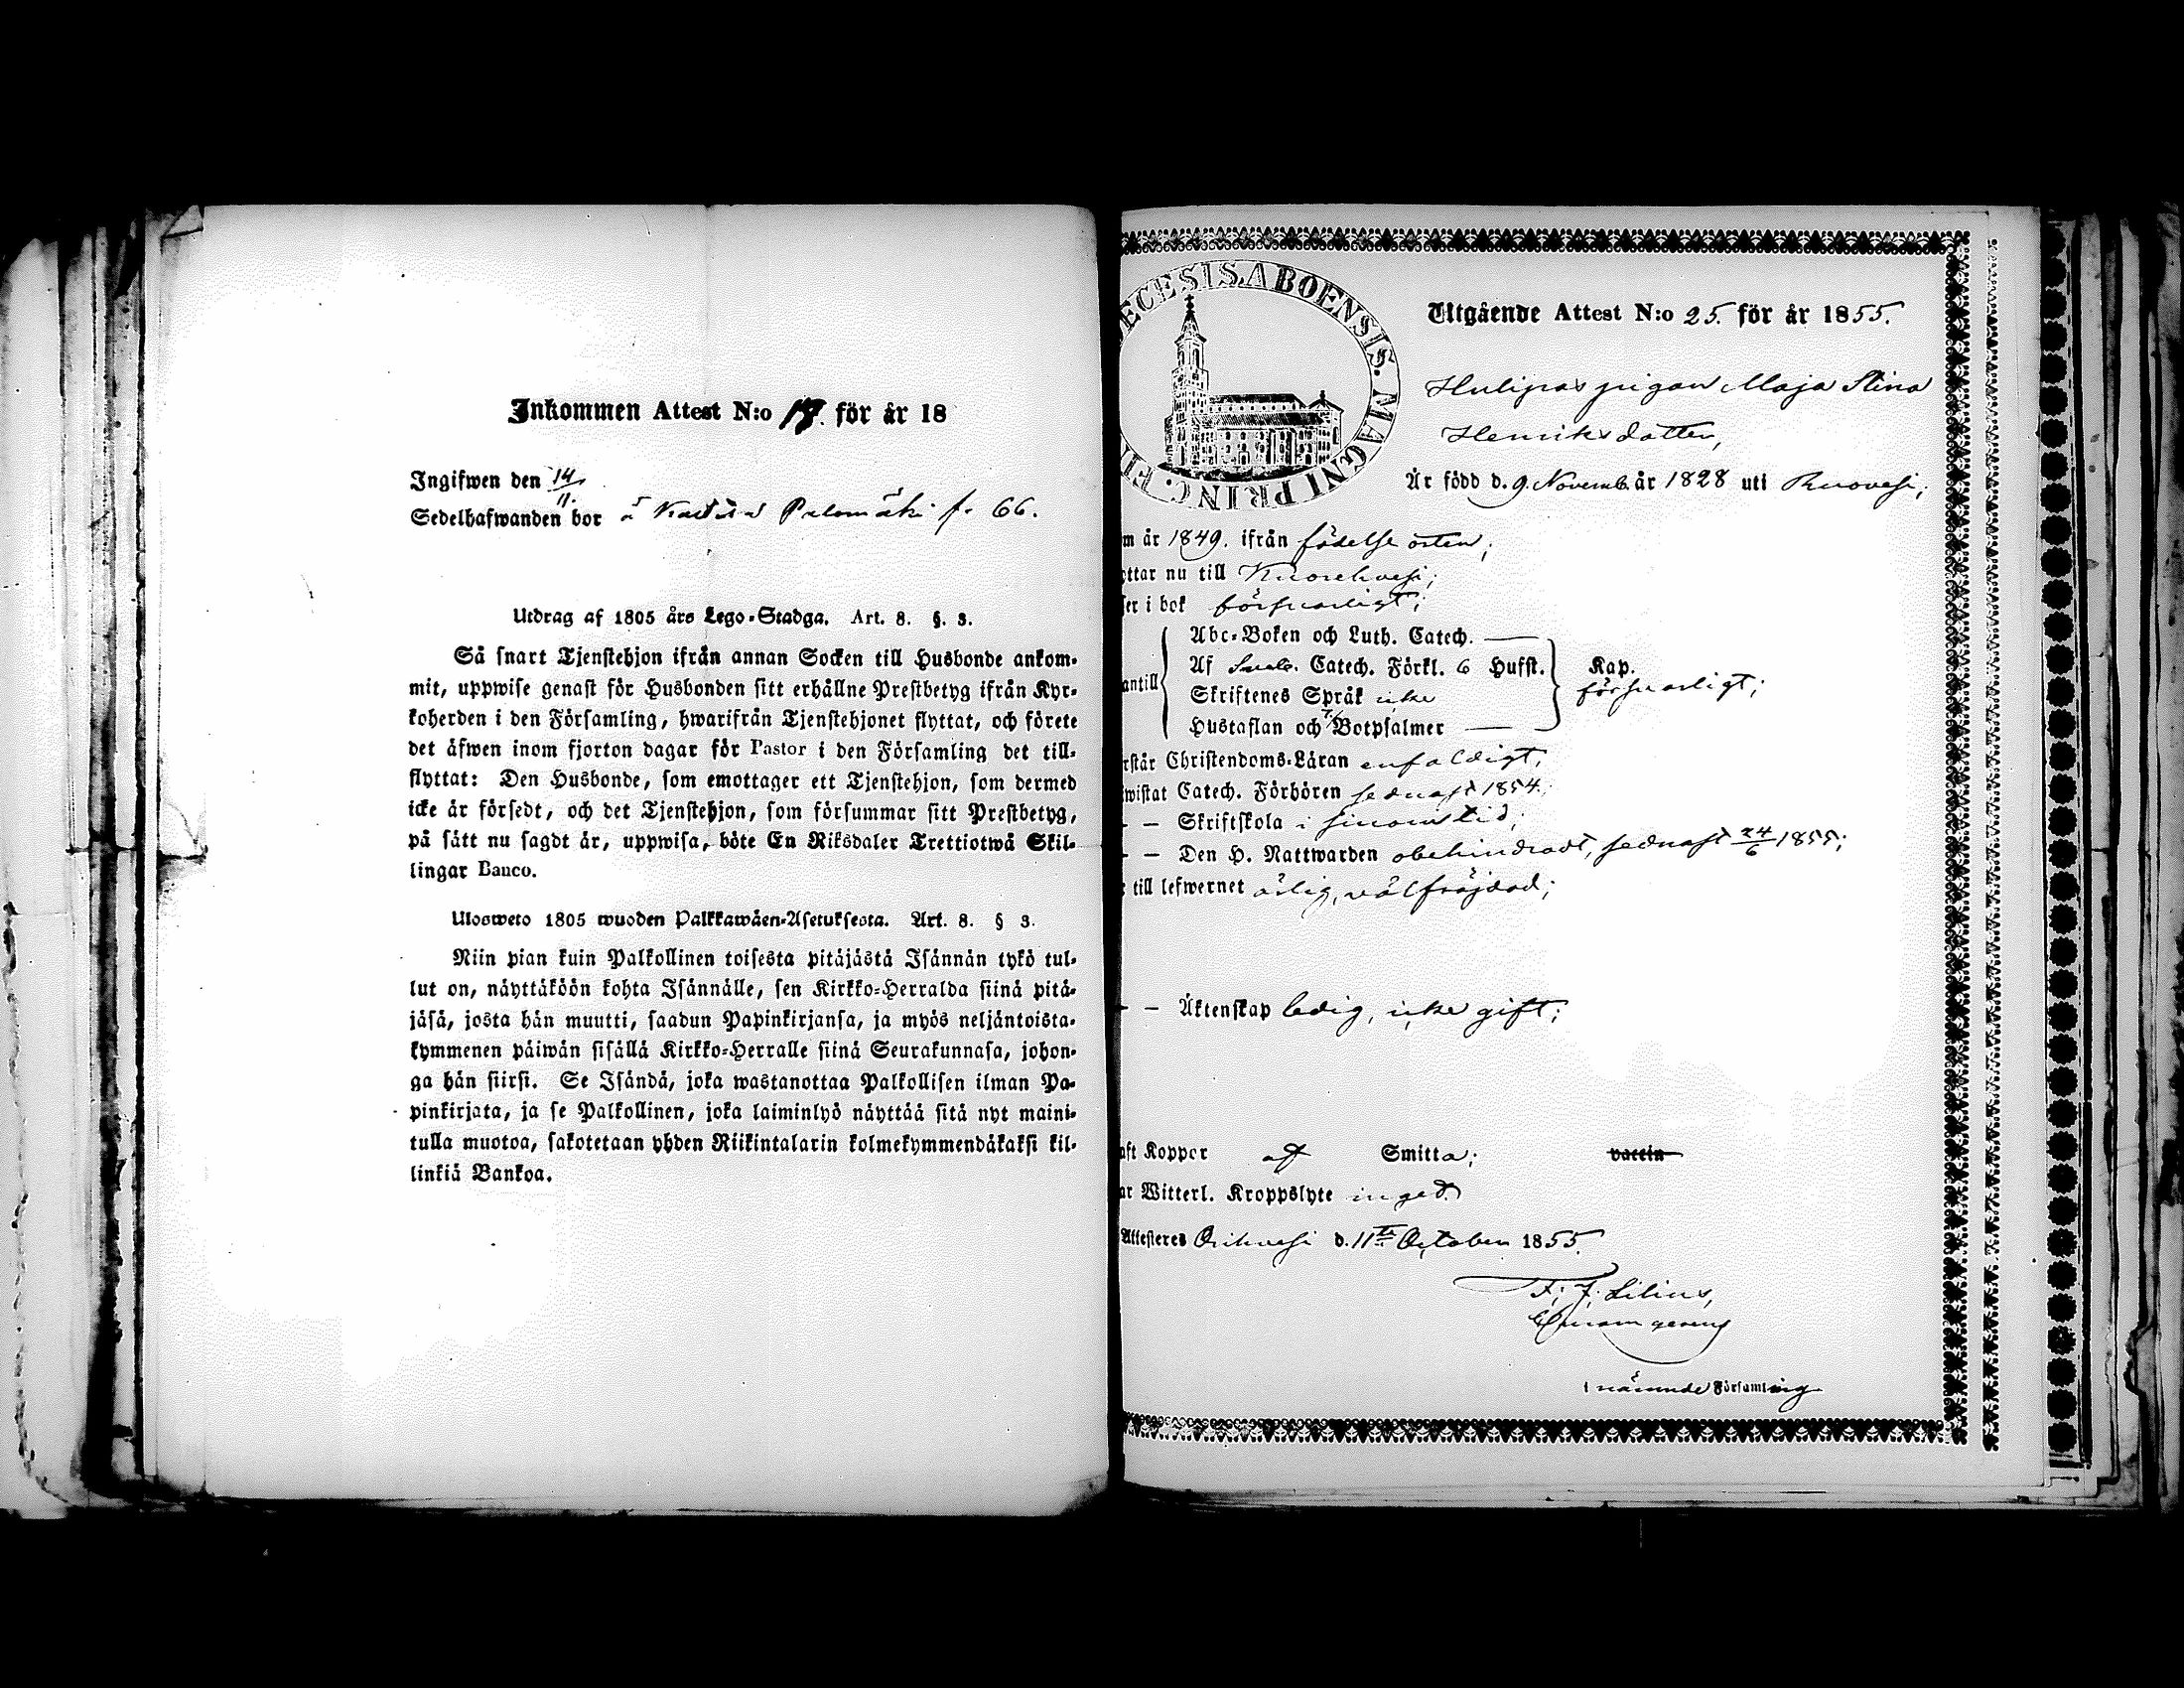 Inkommen Attest N:o 17. för år 18
Ingifwen den 14/11.
Sedelhafwanden bor å Palomäki f. 66.
Utdrag af 1805 års Lego-Stadga. Art. 8. §. 3.
Så snart Tjenstehjon ifrån annan Socken till Husbonde ankom-
mit, uppwise genast för Husbonden sitt erhållne Prestbetyg ifrån Kyr-
koherden i den Församling, hwarifrån Tjenstehjonet flyttat, och förete
det äfwen inom fjorton dagar för Pastor i den Församling det till-
flyttat: Den Husbonde, som emottager ett Tjenstehjon, som dermed
icke är försedt, och det Tjenstehjon, som försummar sitt Prestbetyg,
på sätt nu sagdt är, uppwisa, böte En Riksdaler Trettiotwå Skil-
lingar Banco.
Ulosweto 1805 wuoden Palkkawäen-Asetuksesta. Art. 8. § 3.
Niin pian kuin Palkollinen toisesta pitäjästä Isännän tykö tul-
lut on, näyttäköön kohta Isännälle, sen Kirkko-Herralda siinä pitä-
jäsä, josta hän muutti, saadun Papinkirjansa, ja myös neljäntoista-
kymmenen päiwän sisällä Kirkko-Herralle siinä Seurakunnasa, johon-
ga hän siirsi. Se Isändä, joka wastanottaa Palkollisen ilman Pa-
pinkirjata, ja se Palkollinen, joka laiminlyö näyttää sitä nyt maini-
tulla muotoa, sakotetaan yhden Riikintalarin kolmekymmendäkaksi kil-
linkiä Bankoa.
ECESIS.ABOENSIS.MAGNI PRINC.FI
Utgående Attest N:o 25. för år 1855.
pigan Maja Stina
Henriksdotter,
Är född d. 9. Novemb. år 1828 uti Ruovesi;
m år 1849. ifrån födelse orten;
ttar nu till Kuorehvesi;
ser i bok försvarligt;
antill
Abc-Boken och Luth. Catech. —
Af Sveb. Catech. Förkl. 6 Hufst. Kap.
Skriftenes Språk icke
försvarligt;
Hustaflan och 7/ Botpsalmer —
rstår Christendoms-Läran enfaldigt;
wistat Catech. Förhören sednast 1854;
— — Skriftskola i sinom tid;
— — Den H. Nattwarden obehindradt, sednast 24/6 1855;
r till lefwernet ärlig, välfräjdad;
— — Äktenskap ledig, icke gift;
aft Koppor af Smitta; vaccin
ar Witterl. Kroppslyte inged.
Attesteres Orihvesi d. 11te October 1855.
F. J. Lilius,
i nämnde Församling